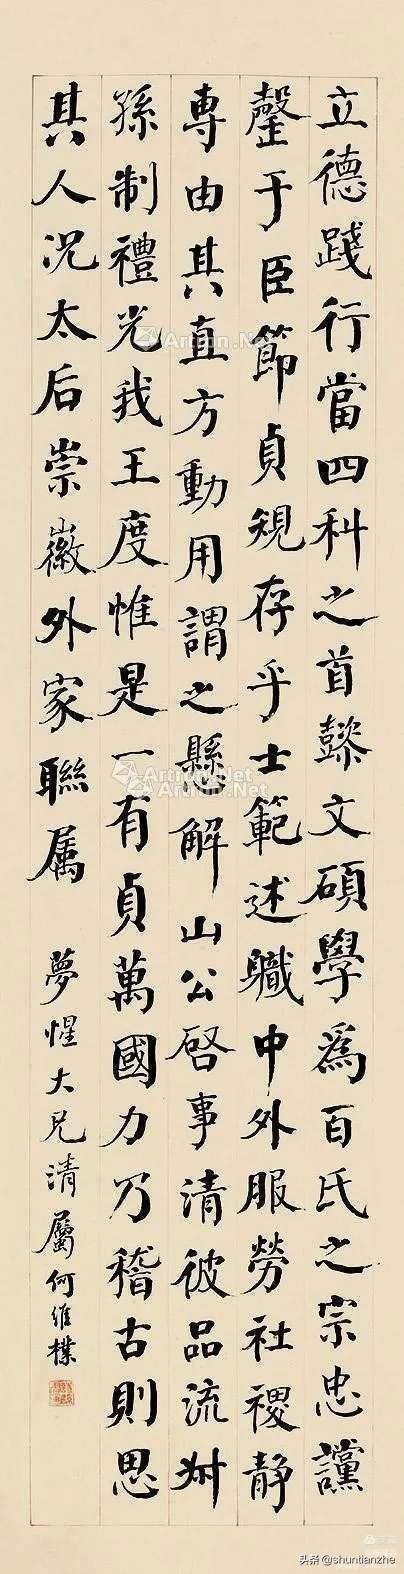 立德踐行當四科之首懿文碩學爲百氏之宗忠讜
罄于臣節貞規存乎士範述職中外服勞社稷靜
專由其直方動用謂之懸解山公啓事清彼品流叔
孫制禮光我王度惟是一有貞萬國力乃稽古則思
其人況太后崇徽外家聯属
夢惺大兄清屬何維樸
Artron.Net
Artron.Net
Artron.Net
Artron.Net
头条 @shuntianzhe